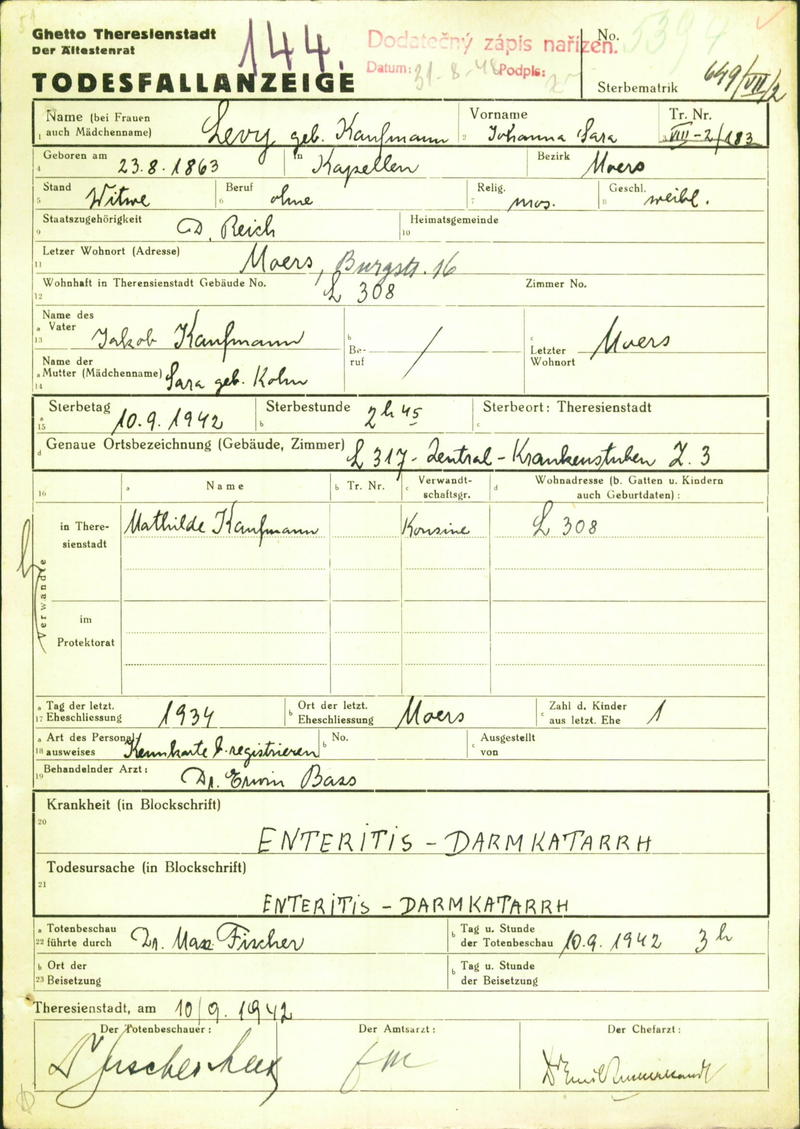 Ghetto Theresienstadt
Der Ältestenrat
TODESFALLANZEIGE
144.
Dodatečný zápis nařízen.
Datum: 31.8.48 Podpis:
No. 5394
Sterbematrik 649/VII/2
Name (bei Frauen auch Mädchenname) Levy geb. Kaufmann
Vorname Johanna Sara
Tr. Nr. VIII-2/183
1 2 3
4 Geboren am 23.8.1863 in Kapellen Bezirk Moers
5 Stand Witwe 6 Beruf ohne 7 Relig. mos. 8 Geschl. weibl.
9 Staatszugehörigkeit D. Reich 10 Heimatsgemeinde
11 Letzer Wohnort (Adresse) Moers, Burgstr. 16
12 Wohnhaft in Therensienstadt Gebäude No. L 308 Zimmer No.
13 a Name des Vater Jakob Kaufmann
b Beruf /
c Letzter Wohnort Moers
14 a Name der Mutter (Mädchenname) Sara geb. Kohn
15 a Sterbetag 10.9.1942 b Sterbestunde 2h 45 c Sterbeort: Theresienstadt
d Genaue Ortsbezeichnung (Gebäude, Zimmer) L 317 - Zentral - Krankenstuben Z. 3
16 a Name b Tr. Nr. c Verwandtschaftsgr. d Wohnadresse (b. Gatten u. Kindern auch Geburtdaten):
Verwandte
in Theresienstadt Mathilde Kaufmann Kousine L 308
im Protektorat
17 a Tag der letzt. Eheschliessung 1934 b Ort der letzt. Eheschliessung Moers c Zahl d. Kinder aus letzt. Ehe 1
18 a Art des Personalausweises Kennkarte b. registrieren b No. c Ausgestellt von
19 Behandelnder Arzt: Dr. Erwin Bass
Krankheit (in Blockschrift)
20 ENTERITIS - DARMKATARRH
Todesursache (in Blockschrift)
21 ENTERITIS - DARMKATARRH
22 a Totenbeschau führte durch Dr. Max Fischer b Tag u. Stunde der Totenbeschau 10.9.1942 3h
23 b Ort der Beisetzung b Tag u. Stunde der Beisetzung
Theresienstadt, am 10/9.1942
Der Totenbeschauer: Der Amtsarzt: Der Chefarzt: